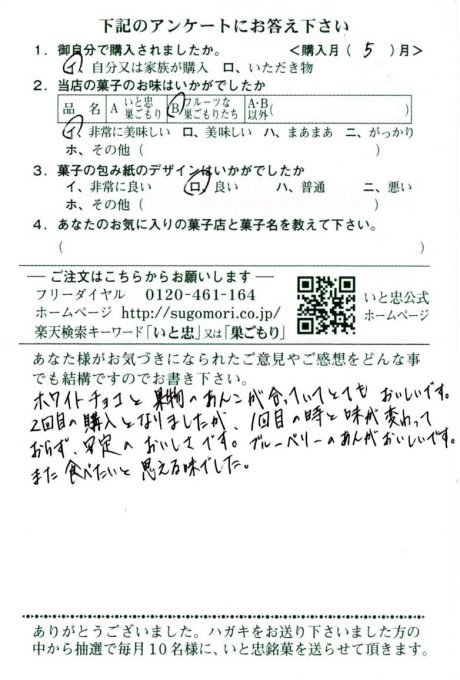 下記のアンケートにお答え下さい
1．御自分で購入されましたか。 ＜購入月（ 5 ）月＞
イ、自分又は家族が購入 ロ、いただき物
2．当店の菓子のお味はいかがでしたか
品 名 A いと忠巣ごもり B フルーツな巣ごもりたち A・B以外（ ）
イ、非常に美味しい ロ、美味しい ハ、まあまあ ニ、がっかり
ホ、その他（ ）
3．菓子の包み紙のデザインはいかがでしたか
イ、非常に良い ロ、良い ハ、普通 ニ、悪い
ホ、その他（ ）
4．あなたのお気に入りの菓子店と菓子名を教えて下さい。
（ ）
― ご注文はこちらからお願いします ―
フリーダイヤル 0120-461-164
ホームページ http://sugomori.co.jp/
楽天検索キーワード「いと忠」又は「巣ごもり」
いと忠公式
ホームページ
あなた様がお気づきになられたご意見やご感想をどんな事
でも結構ですのでお書き下さい。
ホワイトチョコと果物のあんこが合っていてとてもおいしいです。
2回目の購入となりましたが、1回目の時と味が変わって
おらず、安定のおいしさです。ブルーベリーのあんがおいしいです。
また食べたいと思える味でした。
ありがとうございました。ハガキをお送り下さいました方の
中から抽選で毎月10名様に、いと忠銘菓を送らせて頂きます。